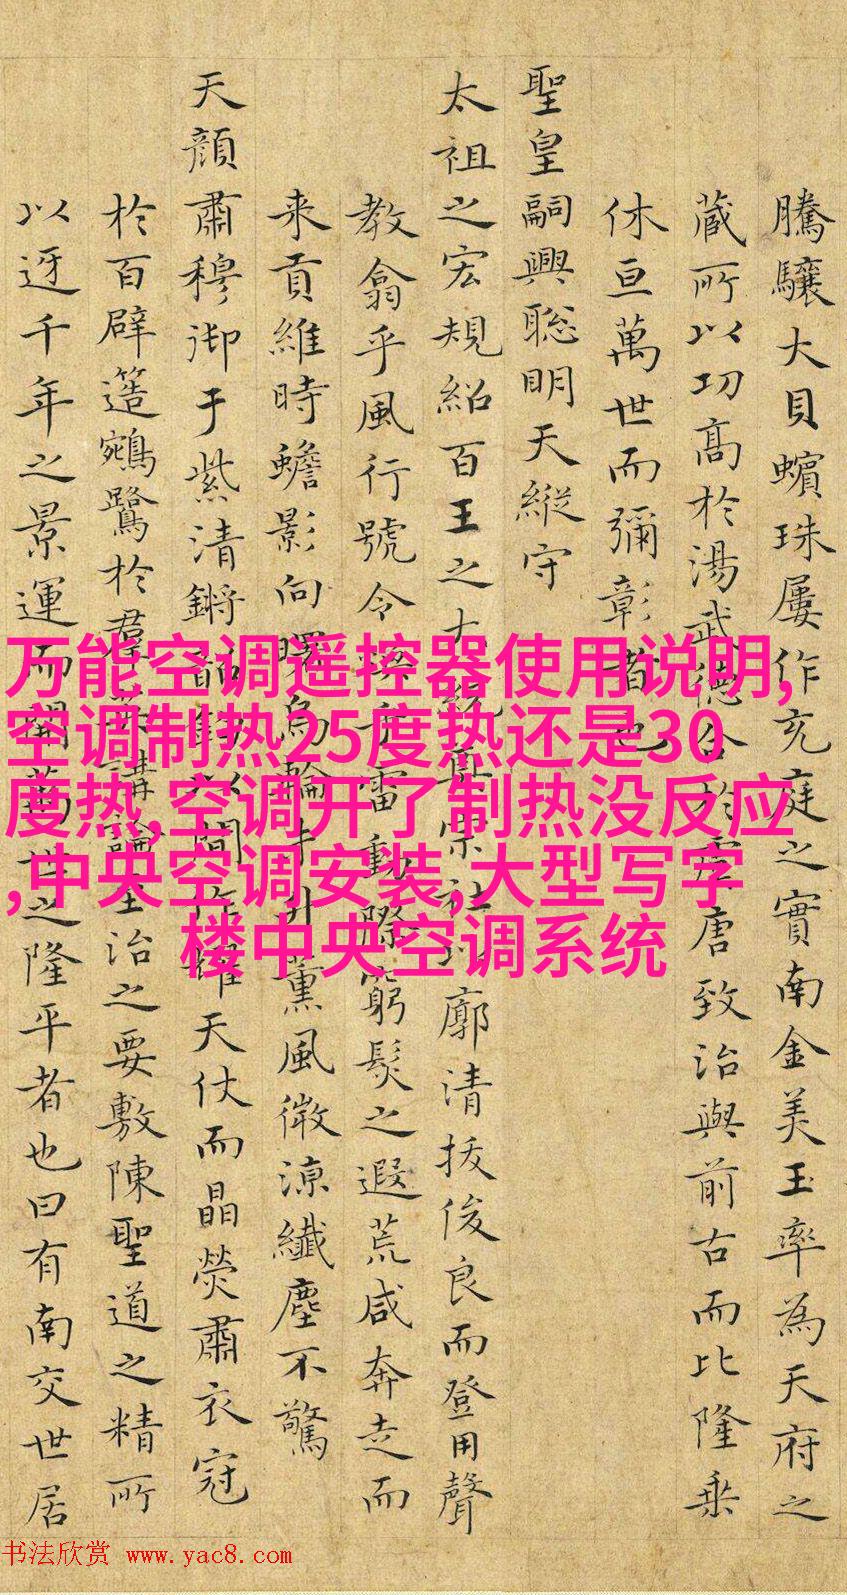 騰驤大貝蠙珠屢作充庭之實南金美玉率為天府之
藏所以功高於湯武德合於虞唐致治與前古而比隆乗
休亘萬世而彌彰者也
聖皇嗣興聡明天縱守
太祖之宏規紹百王之大統廓清拔俊良而登用聲
教翕乎風行號令乎雷動際窮髮之遐荒咸奔走而
来貢維時蟾影向曙烏輪升薰風微涼纎塵不驚
天顔肅穆御于紫清鏘韶以間作耀天仗而晶熒肅衣冠
於百辟簉鵷鷺於羣英講論至治之要敷陳聖道之精所
以迓千年之景運而開萬世之隆平者也曰有南交世居
万能空调遥控器使用说明,
空调制热25度热还是30
度热,空调开了制热没反应
,中央空调安装,大型写字
楼中央空调系统
书法欣赏 www.yac8.com